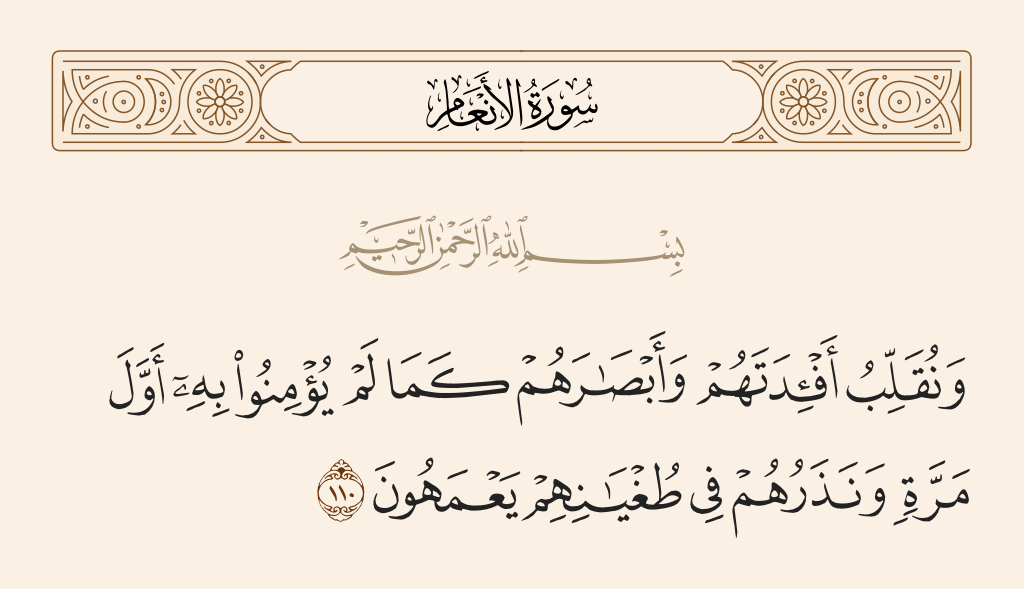 سُورَةُ الأَنْعَامِ
بِسْمِ ٱللَّهِ ٱلرَّحْمَٰنِ ٱلرَّحِيمِ
وَنُقَلِّبُ أَفْـِٔدَتَهُمْ وَأَبْصَٰرَهُمْ كَمَا لَمْ يُؤْمِنُوا۟ بِهِۦٓ أَوَّلَ
مَرَّةٍ وَنَذَرُهُمْ فِى طُغْيَٰنِهِمْ يَعْمَهُونَ ١١٠